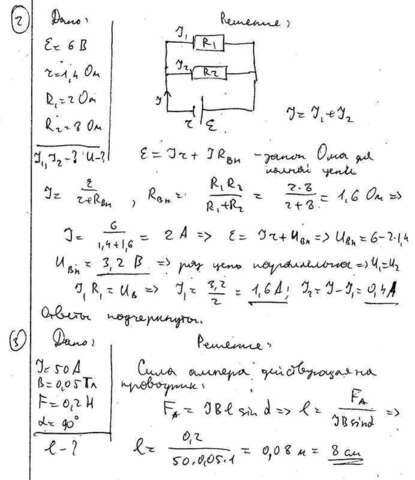 ② Дано: Решение:
ε = 6 В
r = 1,4 Ом
R₁ = 2 Ом
R₂ = 8 Ом
I₁, I₂ - ? U - ?
I₁ R₁
I₂ R₂
I
r ε
I = I₁ + I₂
ε = Ir + IRвн - закон Ома для
полной цепи
I = ε/(r+Rвн), Rвн = R₁R₂/(R₁+R₂) = 2·8/(2+8) = 1,6 Ом =>
I = 6/(1,4+1,6) = 2 А => ε = Ir + Uвн => Uвн = 6-2·1,4
Uвн = 3,2 В => цепь параллельное => U₁ = U₂
I₁R₁ = Uв => I₁ = 3,2/2 = 1,6 А; I₂ = I - I₁ = 0,4 А
Ответы подчеркнуты.
③ Дано: Решение:
I = 50 А
B = 0,05 Тл
F = 0,2 Н
α = 90°
l - ?
Сила ампера действующая на
проводник:
F_A = IBl sin α => l = F_A/(IB sin α) =>
l = 0,2/(50·0,05·1) = 0,08 м = 8 см